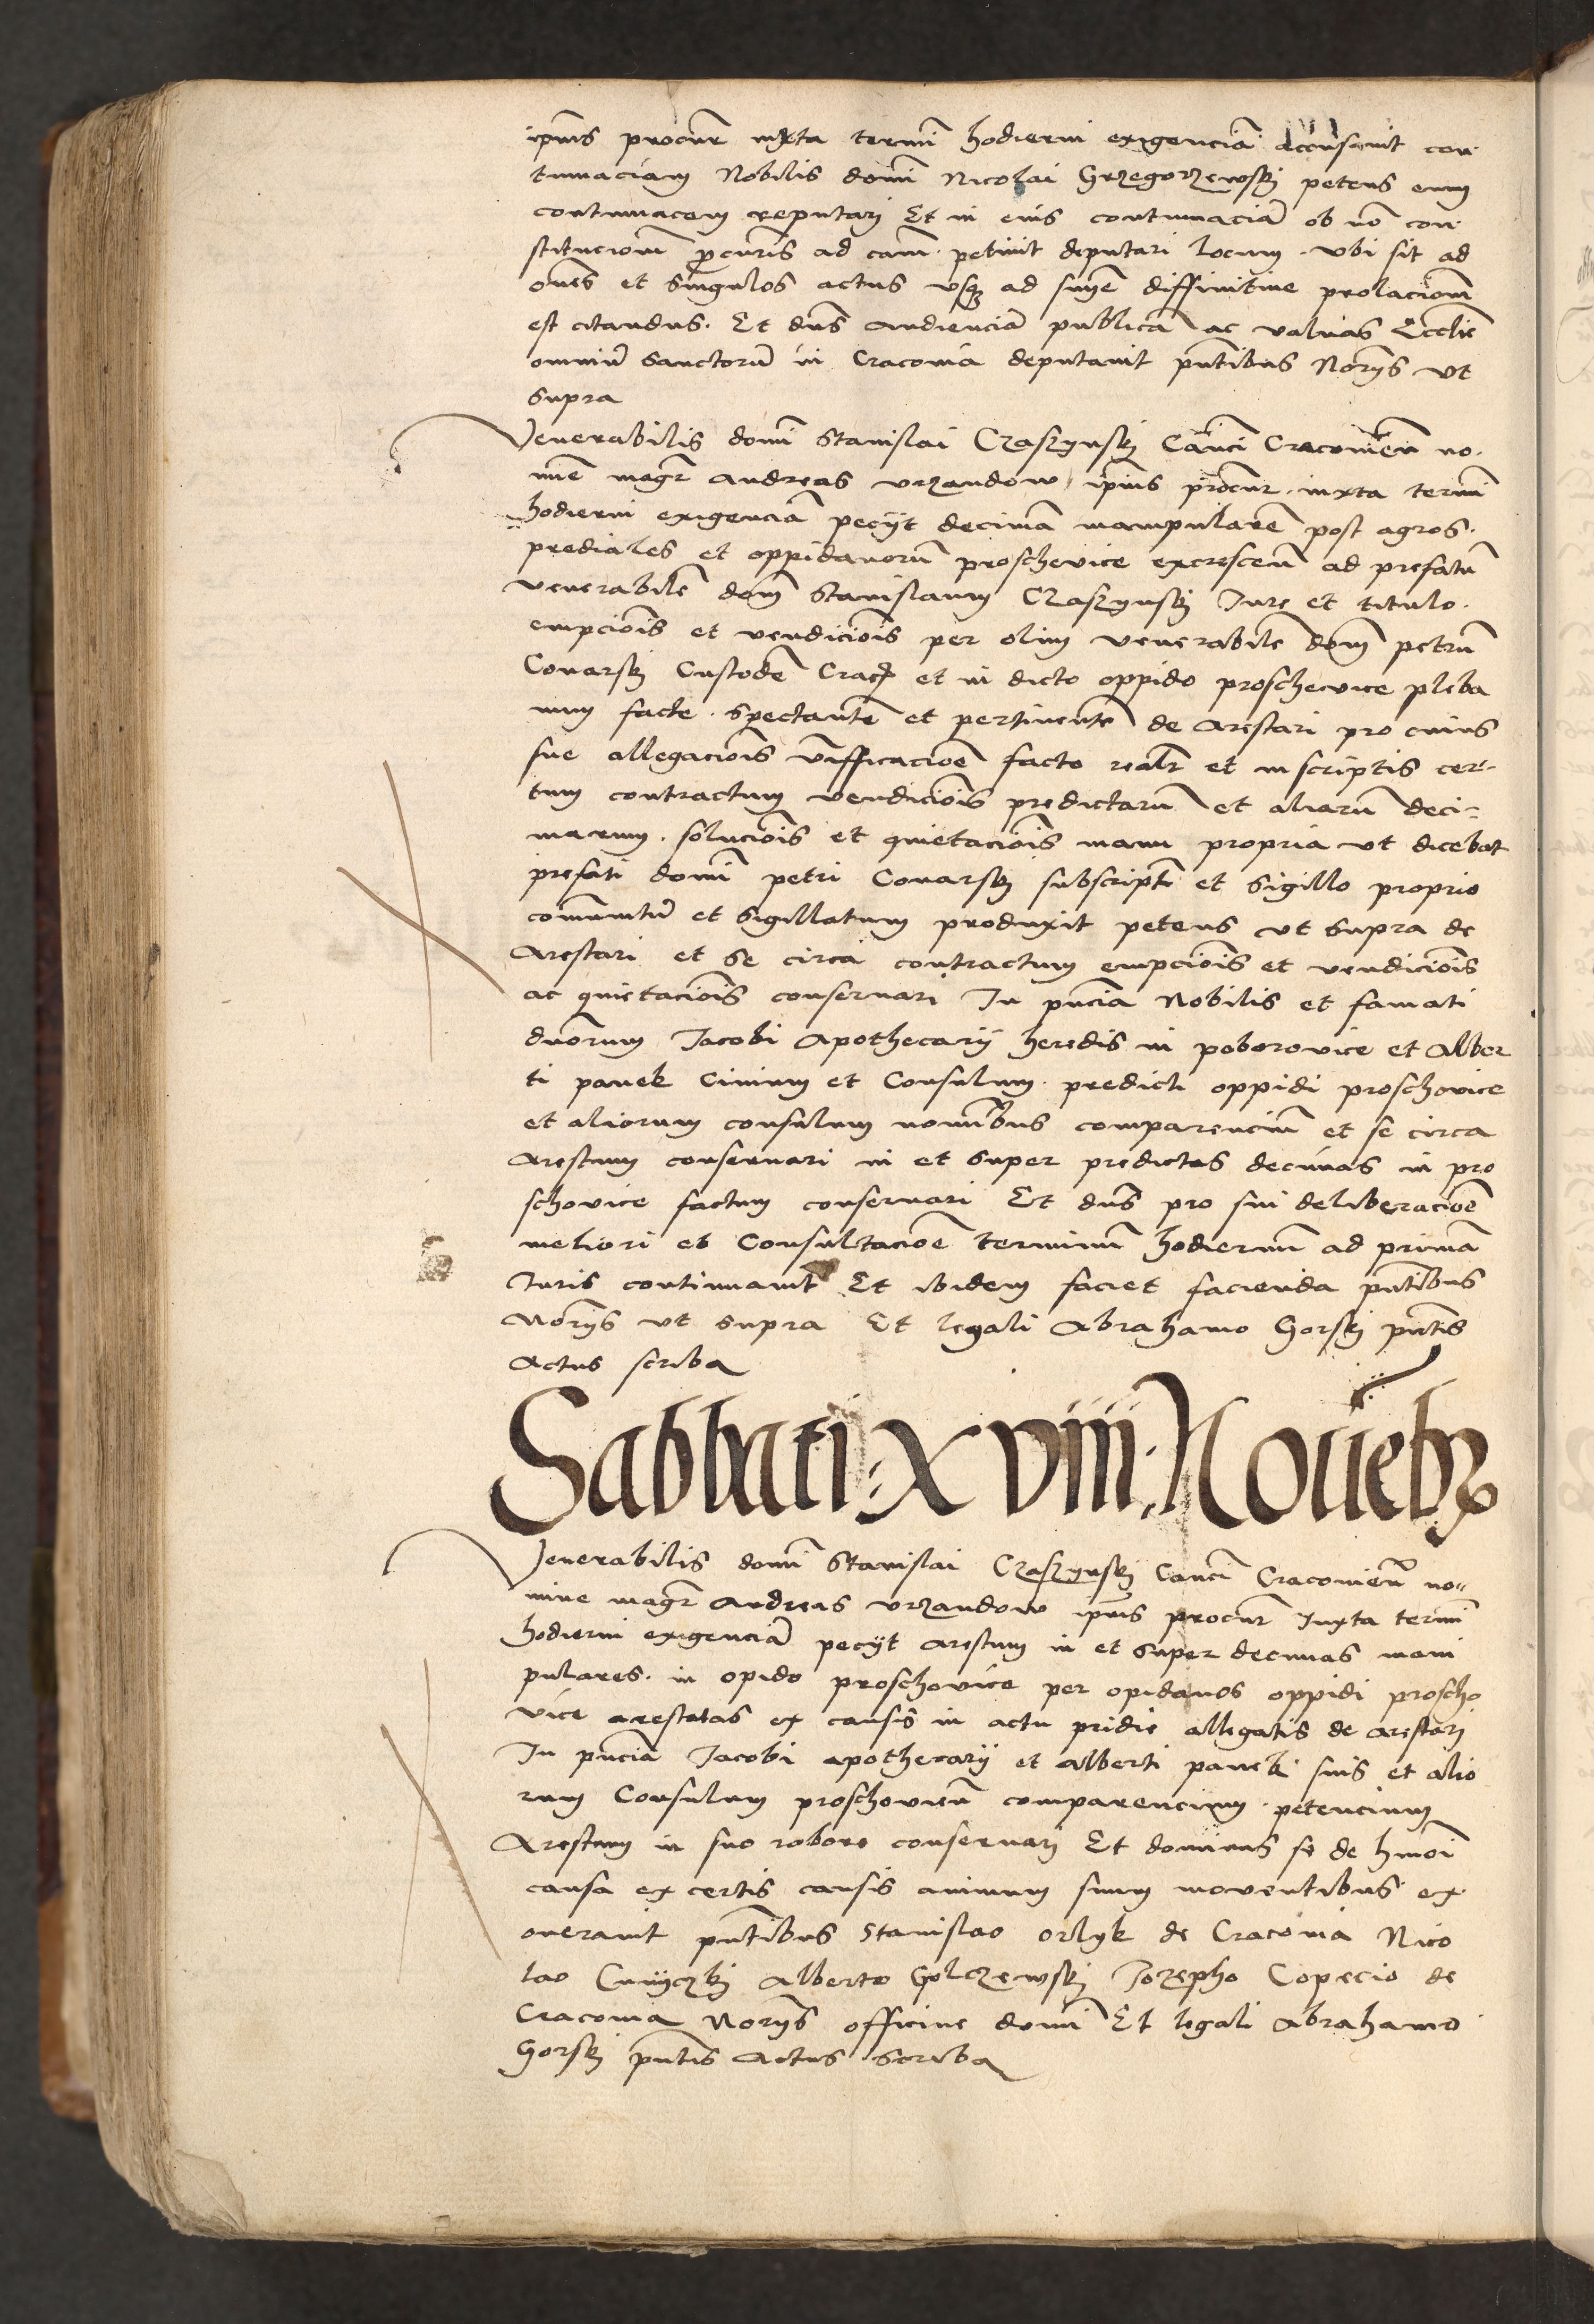 ipius procur iuxta termi hodierni exigencia accusavit con
tumaciam Nobilis domi Nicolai Grzegorzewsky petens eum
contumacem reputari Et in eius contumacia ob no con
stitucionem procuris ad cam petiuit deputari locum ubi sit ad
omes et singulos actus usq ad snye diffinitive prolacionem
est citandus. Et dns Audiencia publica ac valuas Ecclie
omniu Sanctoru in Cracouia deputauit pntibus Norys ut
supra
Venerabilis domi Stanislai Czaszynsky Canci Cracouien no
mie magr Andreas vrzandow ipius procur iuxta termi
hodierni exigencia pecyt decima manipulare post agros
prediales et oppidanoru proschevice excrescen ad prefatu
venerabile dom Stanislaum Czaszynsky Iure et titulo
empciois et vendiciois per olim venerabile dom petru
Conarsky Custode Crac et in dicto oppido proschevice pleba
num facte spectante et pertinente de Arestari pro cuius
sue allegaciois vifficacioe facto realr et in scriptis cer
tum contractum vendiciois predictaru et aliaru deci
marum soluciois et quietaciois manu propria ut dicebat
prefati domi petri Conarsky subscript et sigillo proprio
comunitu et sigillatum produxit petens ut supra de
Arestari et se circa contractum empciois et vendiciois
ac quietaciois conseruari In pncia Nobilis et famati
dnorum Jacobi Apothecarij heredis in poborovice et Alber
ti panek Civium et Consulum predicti oppidi proschovice
et aliorum consulum nominibus comparenciu et se circa
Arestum conseruari in et super predictas decimas in pro
schovice factum conseruari Et dns pro sui deliberacioe
meliori et Consultacioe terminu hodiernu ad prima
Iuris continuauit Et ibidem faciet facienda pntibus
Norys ut supra Et legali Abrahamo Gorsky pntis
Actus scriba
Sabbati XVIIII Novebr
Venerabilis domi Stanislai Czaszynsky Canci Cracouien no
mine magr Andreas vrzandow ipius procur Iuxta termi
hodierni exigencia pecyt Arestum in et super decimas mani
pulares in opido proschovice per opidanos oppidi proscho
vice arestatas ex causis in actu pridie allegatis de Arestari
In pncia Jacobi apothecarij et alberti panek suis et alio
rum Consulum proschovien comparencium petencium
Arestum in suo robore conseruari Et dominus se de hmoi
causa ex certis causis animum suum moventibus ex
onerauit pntibus Stanislao orlyk de Cracouia Nico
lao Alberto Golczewsky Jozepho Copecio de
Cracouia Norys officine domi Et legali Abrahamo
Gorsky pntis Actus scriba